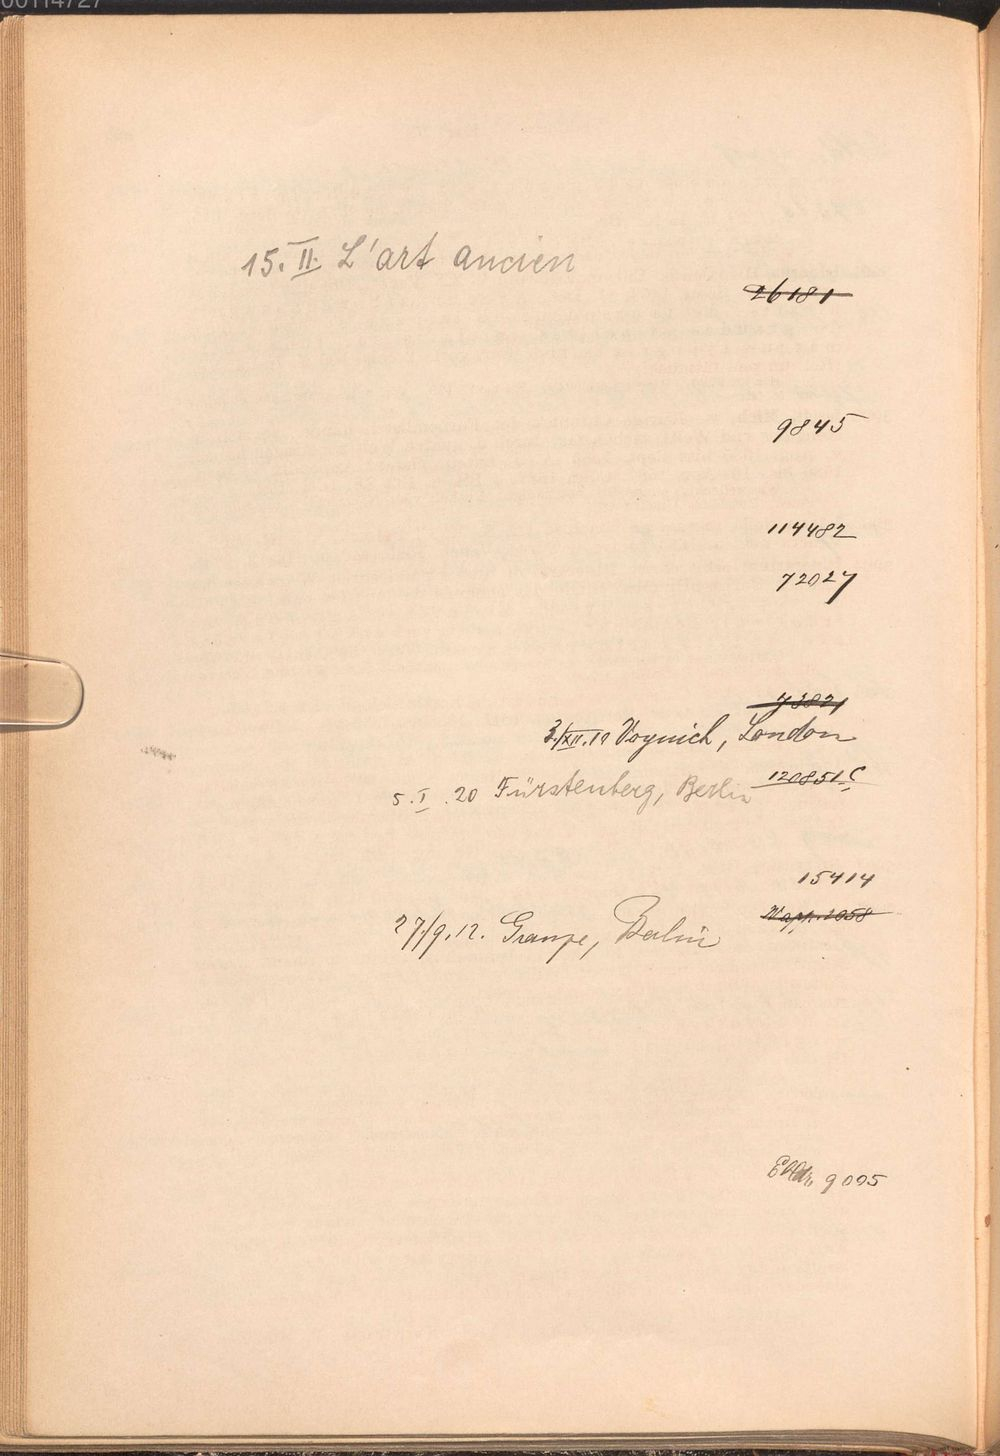 00114727
15. II. L'art ancien
26181
9845
114482
72027
7382,
3./XII. 19 Voynich, London
120851 c
5. I. 20 Fürstenberg, Berlin
15414
27./9. 12. Graupe, Berlin
9005